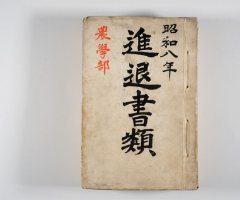 昭和八年
進退書類
農學部